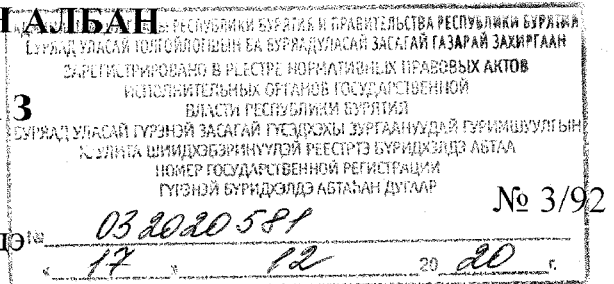 Н АЛБАН
РЕСПУБЛИКИ БУРЯТИЯ И ПРАВИТЕЛЬСТВА РЕСПУБЛИКИ БУРЯТИЯ
БУРЯАД УЛАСАЙ ТОЛГОЙЛОГШЫН БА БУРЯАД УЛАСАЙ ЗАСАГАЙ ГАЗАРАЙ ЗАХИРГААН
ЗАРЕГИСТРИРОВАНО В РЕЕСТРЕ НОРМАТИВНЫХ ПРАВОВЫХ АКТОВ
ИСПОЛНИТЕЛЬНЫХ ОРГАНОВ ГОСУДАРСТВЕННОЙ
З
ВЛАСТИ РЕСПУБЛИКИ БУРЯТИЯ
БУРЯАД УЛАСАЙ ГҮРЭНЭЙ ЗАСАГАЙ ГҮЙСЭДХЭХЫ ЗУРГААНУУДАЙ ГУРИМШУУЛГЫН
ШИИДХЭБЭРИНҮҮДЭЙ РЕЕСТРТЭ БҮРИДХЭЛДЭ АБТАА
НОМЕР ГОСУДАРСТВЕННОЙ РЕГИСТРАЦИИ
ГҮРЭНЭЙ БҮРИДХЭЛДЭ АБТАҺАН ДУГААР
№ 3/92
№ 032020581
« 17 » 12 20 20 г.